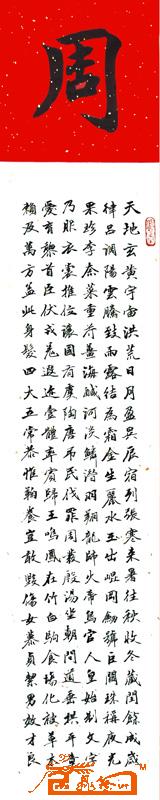 周
天地玄黄宇宙洪荒日月盈昃辰宿列張寒来暑往秋收冬藏閏餘成歲
律吕調陽雲騰致雨露结為霜金生麗水玉出崐岡劍號巨闕珠稱夜光
果珍李柰菜重芥薑海鹹河淡鱗潛羽翔龍師火帝鳥官人皇始制文字
乃服衣裳推位讓國有虞陶唐吊民伐罪周發殷湯坐朝問道垂拱平章
愛育黎首臣伏戎羌遐迩壹體率賓歸王鳴鳳在竹白駒食場化被草木
賴及萬方盖此身髮四大五常恭惟鞠養豈敢毀傷女慕貞絜男效才良